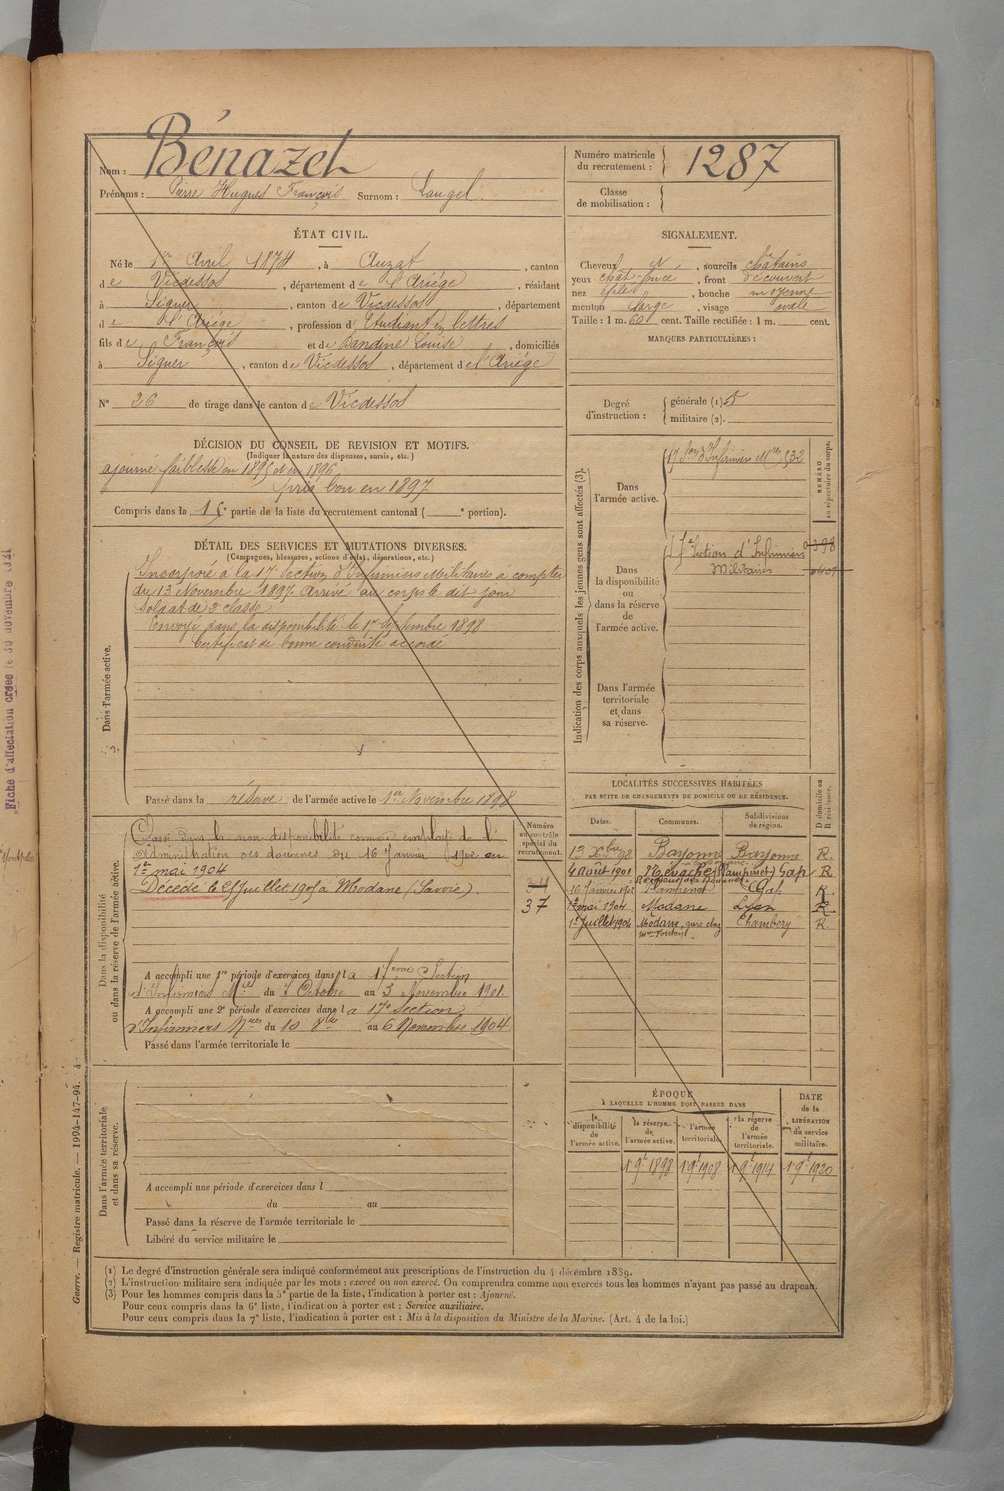 Bénazet
Nom :
Prénoms : Pierre Hugues François Surnom : Laugel
Numéro matricule du recrutement : 1287
Classe de mobilisation :
ÉTAT CIVIL.
Né le 1er Avril 1874, à Auzat, canton
de Vicdessos, département de l'Ariége, résidant
à Siguer, canton de Vicdessos, département
d e l'Ariége, profession d' Etudiant en lettres
fils de François et de Dandine Louise, domiciliés
à Siguer, canton de Vicdessos, département de l'Ariége
N° 26 de tirage dans le canton de Vicdessos
SIGNALEMENT.
Cheveux N, sourcils châtains
yeux chât. foncé, front découvert
nez, bouche moyenne
menton large, visage ovale
Taille : 1 m. 60 cent. Taille rectifiée : 1 m. cent.
MARQUES PARTICULIÈRES :
Degré d'instruction : générale (1) 5
militaire (2).
DÉCISION DU CONSEIL DE REVISION ET MOTIFS.
(Indiquer la nature des dispenses, sursis, etc.)
ajourné faiblesse en 1895 et en 1896
pris bon en 1897
Compris dans la 1e partie de la liste du recrutement cantonal ( e portion).
DÉTAIL DES SERVICES ET MUTATIONS DIVERSES.
(Campagnes, blessures, actions d'éclat, décorations, etc.)
Dans l'armée active.
Incorporé à la 17e section d'Infirmiers Militaires à compter
du 13 Novembre 1897. Arrivé au corps le dit jour
Soldat de 2e classe
Envoyé dans la disponibilité le 17 Septembre 1898
Certificat de bonne conduite accordé
Passé dans la réserve de l'armée active le 1er Novembre 1898
Indication des corps auxquels les jeunes gens sont affectés (3).
NUMÉRO au répertoire du corps.
Dans l'armée active.
532
Dans la disponibilité ou dans la réserve de l'armée active.
Section d'Infirmiers
Militaires
Dans l'armée territoriale et dans sa réserve.
LOCALITÉS SUCCESSIVES HABITÉES
PAR SUITE DE CHANGEMENTS DE DOMICILE OU DE RÉSIDENCE.
Dates. Communes. Subdivisions de région. D domicile ou R résidence.
13 Xbre 98 Bayonne Bayonne R.
4 août 1901 Névache (Plampinet) Gap R
16 Janvier 1902 Plampinet Gap R.
1er mai 1904 Modane Lyon R
1er Juillet 1904 Modane, gare chez Chambéry R.
Numéro au contrôle spécial du recrutement.
34
37
Dans la disponibilité ou dans la réserve de l'armée active.
Classé dans la non disponibilité comme employé de l'
Administration des douanes du 16 Janvier 1902 au
1er mai 1904
Décédé le Juillet 1905 à Modane (Savoie).
A accompli une 1re période d'exercices dans la 17ème Section
d'Infirmiers Mres du 7 Octobre au 3 Novembre 1901.
A accompli une 2e période d'exercices dans la 17e section
d'Infirmiers Mres du 10 8bre au 6 Novembre 1904
Passé dans l'armée territoriale le
Dans l'armée territoriale et dans sa réserve.
A accompli une période d'exercices dans l
du au
Passé dans la réserve de l'armée territoriale le
Libéré du service militaire le
ÉPOQUE
À LAQUELLE L'HOMME DOIT PASSER DANS
la disponibilité de l'armée active. la réserve de l'armée active. l'armée territoriale. la réserve de l'armée territoriale.
DATE de la LIBÉRATION du service militaire.
1 9e 1898 1 9e 1908 1 9e 1914 1 9e 1920
(1) Le degré d'instruction générale sera indiqué conformément aux prescriptions de l'instruction du 4 décembre 1889.
(2) L'instruction militaire sera indiquée par les mots : exercé ou non exercé. On comprendra comme non exercés tous les hommes n'ayant pas passé au drapeau.
(3) Pour les hommes compris dans la 5e partie de la liste, l'indication à porter est : Ajourné.
Pour ceux compris dans la 6e liste, l'indication à porter est : Service auxiliaire.
Pour ceux compris dans la 7e liste, l'indication à porter est : Mis à la disposition du Ministre de la Marine. (Art. 4 de la loi.)
Guerre. — Registre matricule. — 1994-147-94. 4
Fiche d'affectation créée le 30 novembre